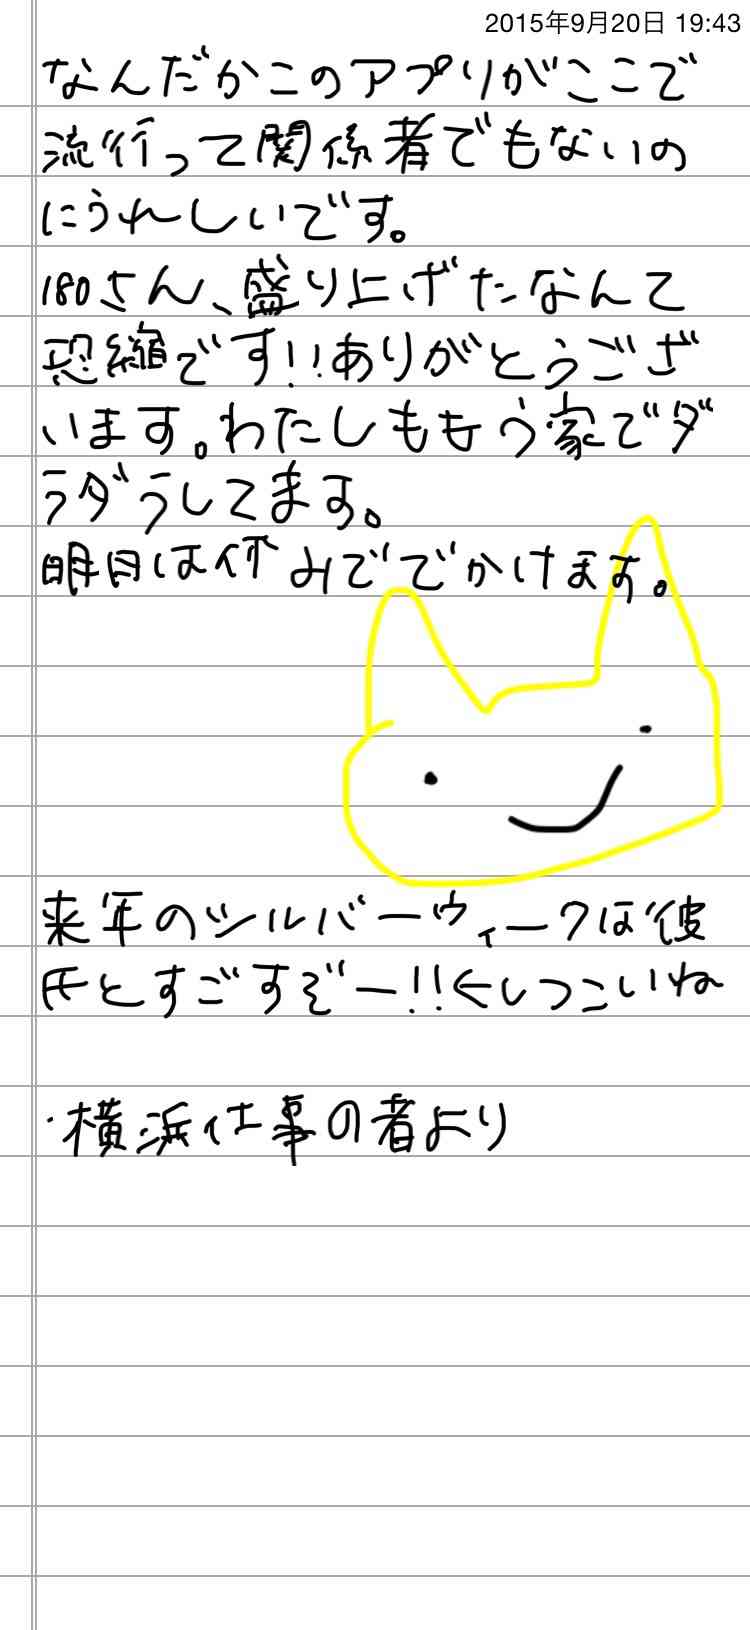 2015年9月20日 19:43
なんだかこのアプリがここで
流行って関係者でもないの
にうれしいです。
180さん、盛り上げたなんて
恐縮です!!ありがとうござ
います。わたしももう家でダ
ラダラしてます。
明日は休みででかけます。
来年のシルバーウィークは彼
氏とすごすぞー!!←しつこいね
・横浜仕事の者より